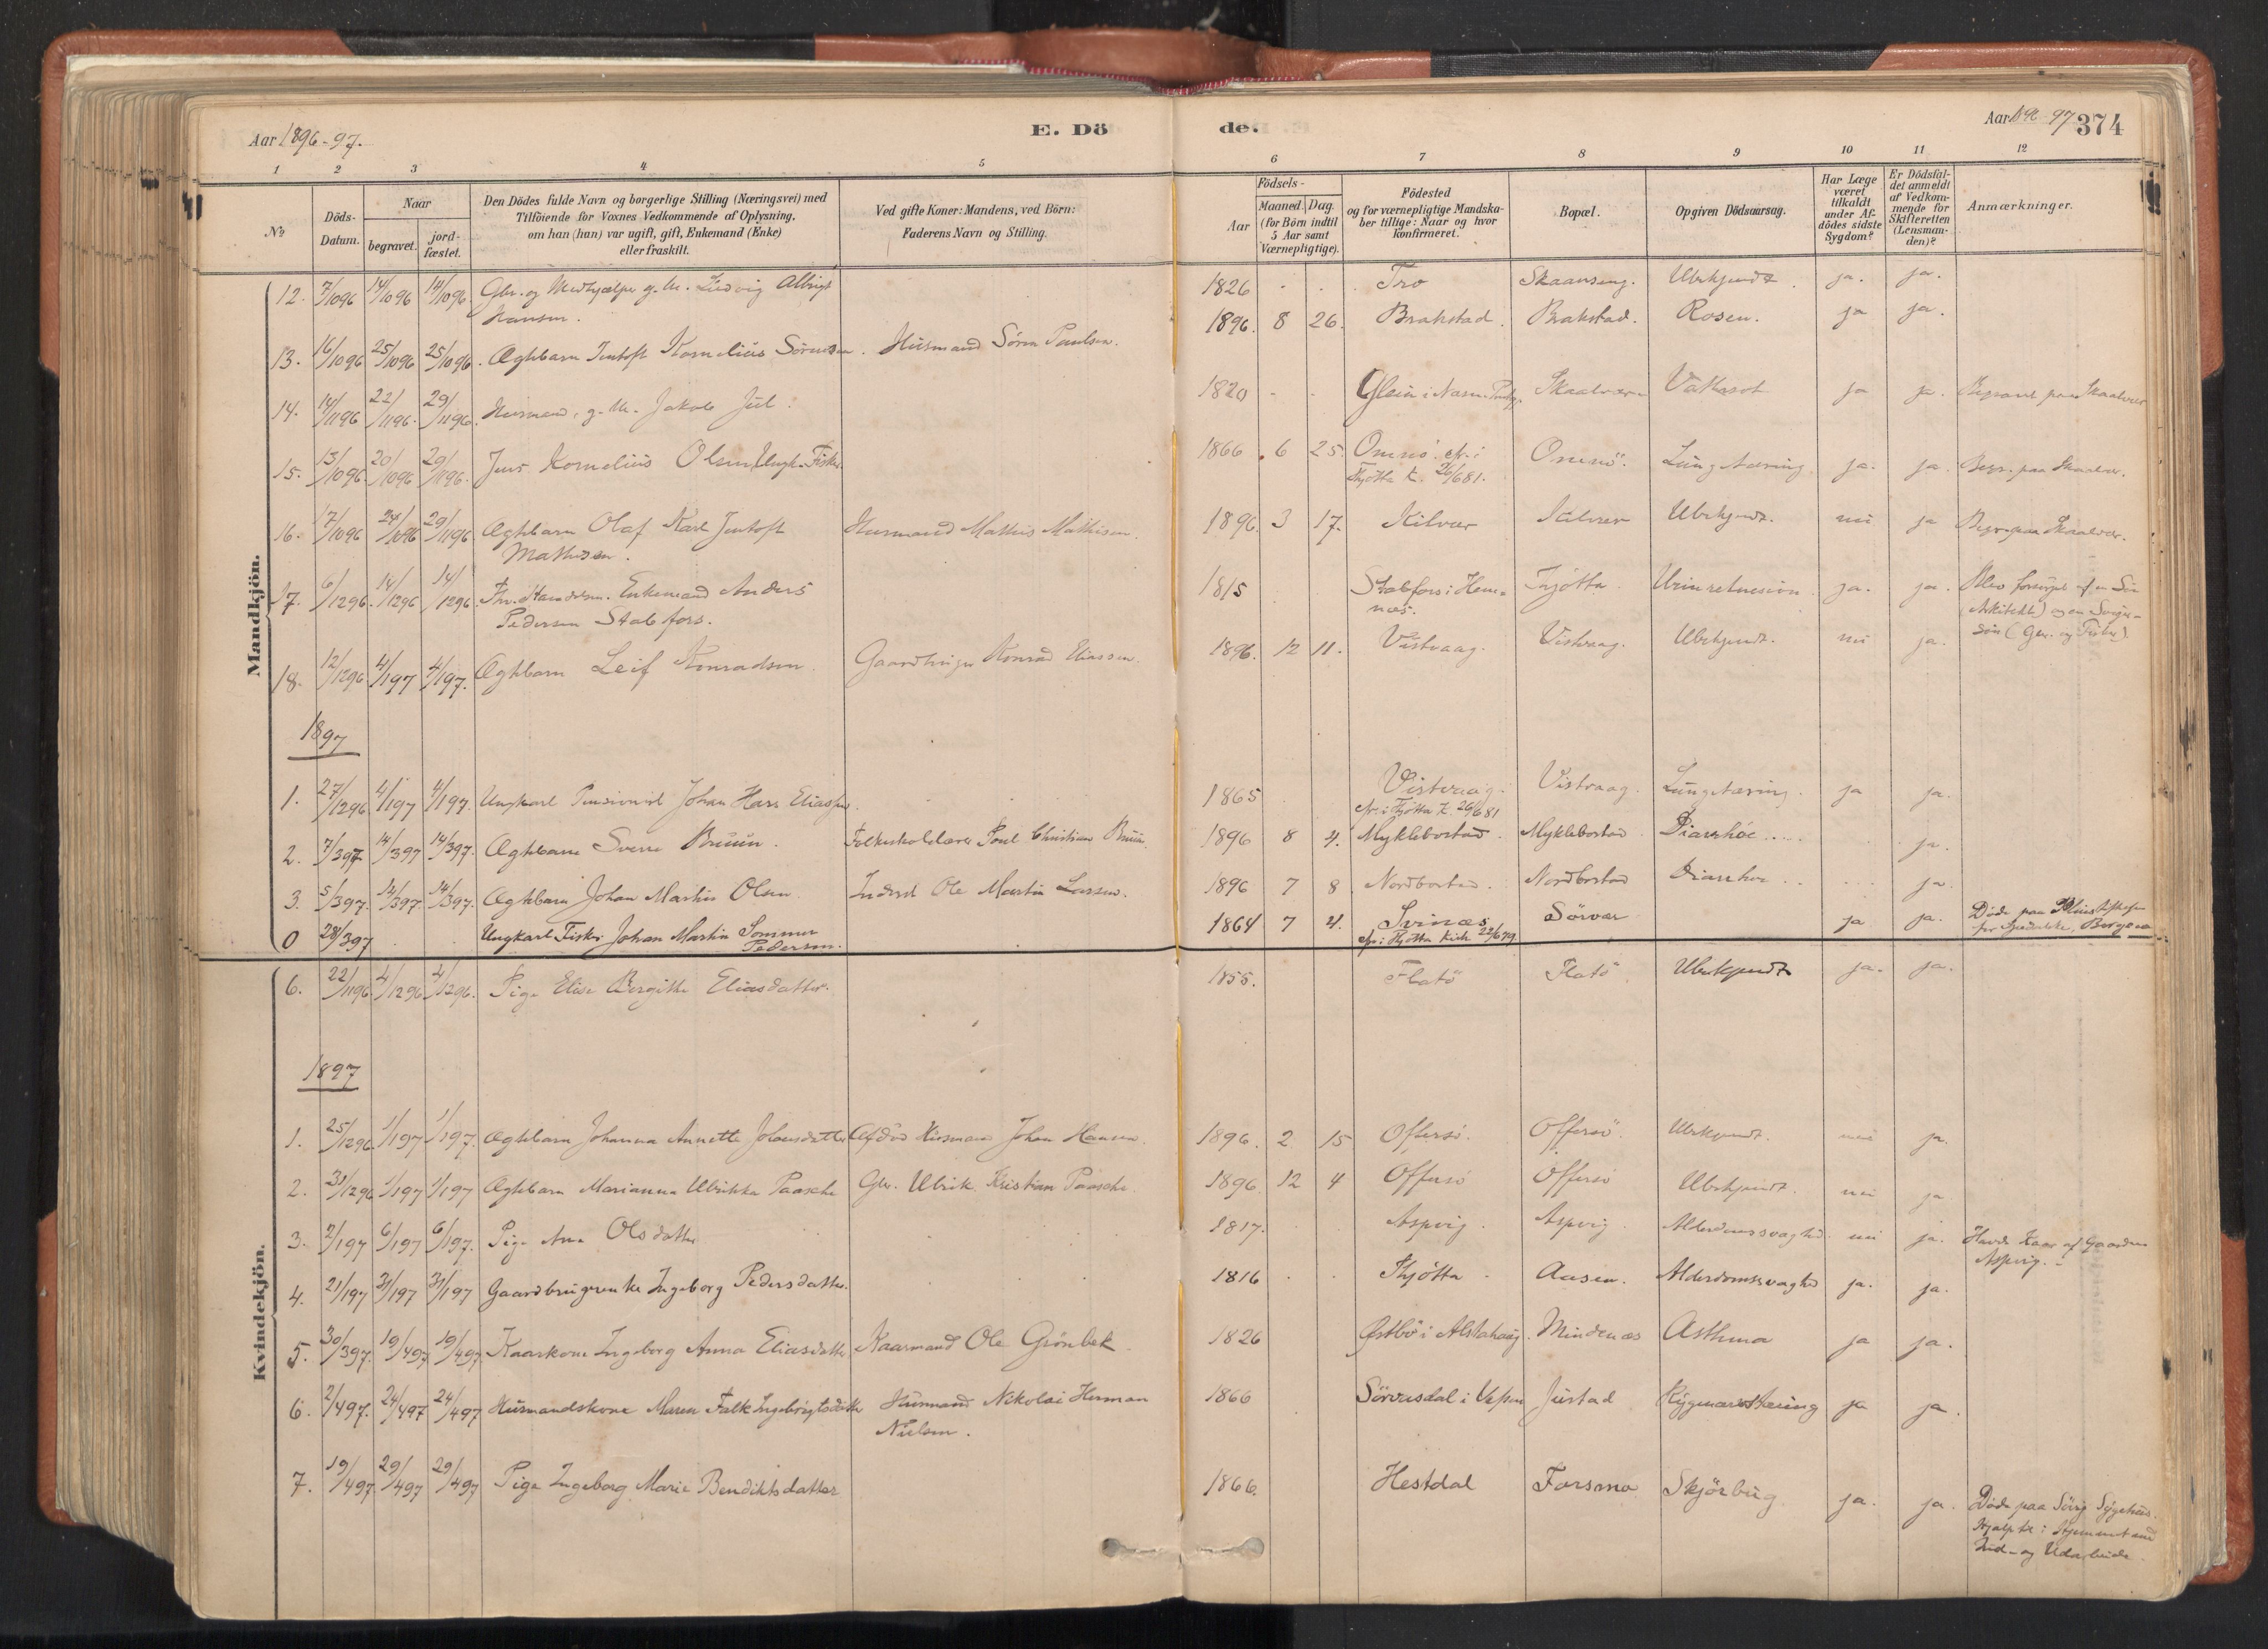 Aar 1896-97.
E. Dö
de.
Aar 1896-97
374
1 2 3 4 5 6 7 8 9 10 11 12
No
Döds-Datum.
Naar
begravet.
jord-fæstet.
Den Dödes fulde Navn og borgerlige Stilling (Næringsvei) med
Tilföiende for Voxnes Vedkommende af Oplysning,
om han (hun) var ugift, gift, Enkemand (Enke)
eller fraskilt.
Ved gifte Koner: Mandens, ved Börn:
Faderens Navn og Stilling.
Födsels-
Aar
Maaned. Dag.
(for Börn indtil
5 Aar samt
Værnepligtige).
Födested
og for værnepligtige Mandska-
ber tillige: Naar og hvor
konfirmeret.
Bopæl.
Opgiven Dödsaarsag.
Har Læge
været
tilkaldt
under Af-
dödes sidste
Sygdom?
Er Dödsfal-
det anmeldt
af Vedkom-
mende for
Skifteretten
(Lensman-
den)?
Anmærkninger.
Mandkjön.
12. 7/1096 14/1096 14/1096. Gbr. og Medhjælper g. M. Ludvig Albrigt
Hansen.
1826 Tro Skaanseng. Ubekjendt. ja. ja.
13. 16/1096 25/1096 25/1096. Ægtebarn Jentoft Kornelius Sörensen. Husmand Sören Paulsen.
1896. 8 26. Brakstad. Brakstad. Rosen. ja ja.
14. 14/1196 22/1196. 29/1196. Husmand, g. M. Jakob Jul.
1820 - - Glein i Nesne Prstg. Skaalvær. Vattersot ja ja. Begravet paa Skaalvær
15. 13/1096. 20/1096 29/1196. Jens Kornelius Olsen, Ungk. Fisker
1866. 6 25. Omnö. cfr. i
Thjötta K. 26/681.
Omnö. Lungetæring. ja. ja. Begr. paa Skaalvær.
16. 17/1096 24/1096 29/1196 Ægtebarn Olaf Karl Jentoft
Mathisen. Husmand Mathis Mathisen.
1896. 3 17. Kilvær Kilvær Ubekjendt. nei ja Begr. paa Skaalvær.
17. 6/1296. 14/1296 14/1296 Fhv. Handelsm. Enkemand Anders
Pedersen Stabfors.
1815 Stabfors i Hem-
næs. Thjötta. Urinretension. ja. ja. Blev forsörget af en Sön
(Arkitekt) og en Sviger-
sön (Gbr. og Fisker).
18. 12/1296 4/197 4/197. Ægtebarn Leif Konradsen. Gaardbruger Konrad Eliassen.
1896. 12 11. Vistvaag. Vistvaag. Ubekjendt. nei ja.
1897
1. 27/1296 4/197 4/197. Ungkarl Pensionist Johan Hass Eliassen.
1865 Vistvaag.
cfr. i Thjøtta K. 26/681
Vistvaag. Lungetæring. ja ja.
2. 7/397 14/397 14/397. Ægtebarn Sverre Bruun. Folkeskolelærer Poul Christian Bruun.
1896 8 4. Myklebostad. Myklebostad. Diarrhöe.... ja.
3. 5/397. 14/397 14/397. Ægtebarn Johan Martin Olsen Inderst Ole Martin Larsen.
1896 7 8. Nordbostad. Nordbostad Diarrhoe.. ja.
0 28/397 Ungkarl Fisker Johan Martin Sommer
Pedersen.
1864 7 4. Svinæs
cfr. i Thjøtta Kirke 22/679
Sörvær ja ja. Döde paa Pleiestiftelsen
for Spedalske, Bergen
Kvindekjön.
6. 22/1196 4/1296 4/1296. Pige Elise Bergitte Eliasdatter.
1855. Flatö Flatö Ubekjendt ja. ja.
1897
1. 25/1296 1/197 1/197. Ægtebarn Johanna Annette Johansdatter Afdöd Husmand Johan Hansen.
1896. 2 15 Offersö. Offersö. Ubekjendt. nei ja.
2. 31/1296 1/197 1/197 Ægtebarn Marianna Ulrikka Paasche Gbr. Ulrik Kristian Paasche.
1896. 12 4 Offersö Offersö Ubekjendt. nei ja
3. 2/197 6/197 6/197. Pige Ane Olsdatter
1817. Aspvig. Aspvig. Alderdomssvaghed. nei ja. Havde Kaar af Gaarden
Aspvig.
4. 21/197 31/197 31/197 Gaardbrugerenke Ingeborg Pedersdatter.
1816 Thjötta. Aasen. Alderdomssvaghed ja. ja.
5. 30/397. 19/497 19/497 Kaarkone Ingeborg Anna Eliasdatter Kaarmand Ole Grönbek.
1826 Østbö i Alstahaug. Mindenæs Asthma ja ja.
6. 2/497. 24/497 24/497 Husmandskone Maren Falk Ingebrigtsdatter Husmand Nikolai Herman
Nielsen.
1866 Sörvasdal i Vefsen Justad Rygmarvstæring ja ja.
7. 19/497 29/497 29/497 Pige Ingeborg Marie Bendiktsdatter
1866. Hestdal Forsmo Skjörbug ja. ja. Döde paa Sörig Sygehus.
Hjalp til i Hjemmet med
Ind- og Udarbeide.